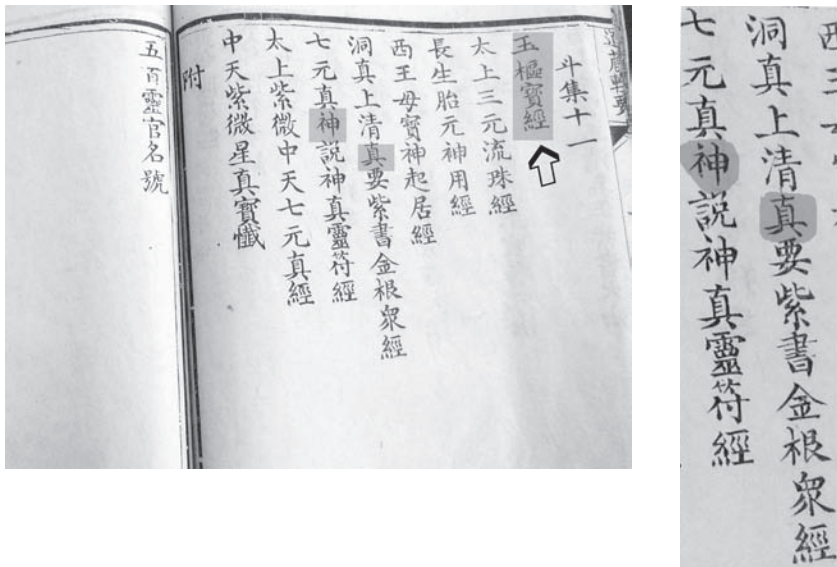 斗集十一
玉樞寳經
太上三元流珠經
長生胎元神用經
西王母寳神起居經
洞真上清真要紫書金根衆經
七元真神説神真靈符經
太上紫微中天七元真經
中天紫微星真寳懺
附
五百靈官名號
洞真上清真要紫書金根衆經
七元真神説神真靈符經